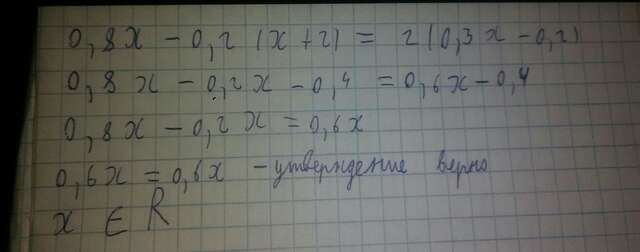 0,8x - 0,2 (x+2) = 2(0,3x-0,2)
0,8x - 0,2x - 0,4 = 0,6x-0,4
0,8x - 0,2x = 0,6x
0,6x = 0,6x - утверждение верно
x ∈ R